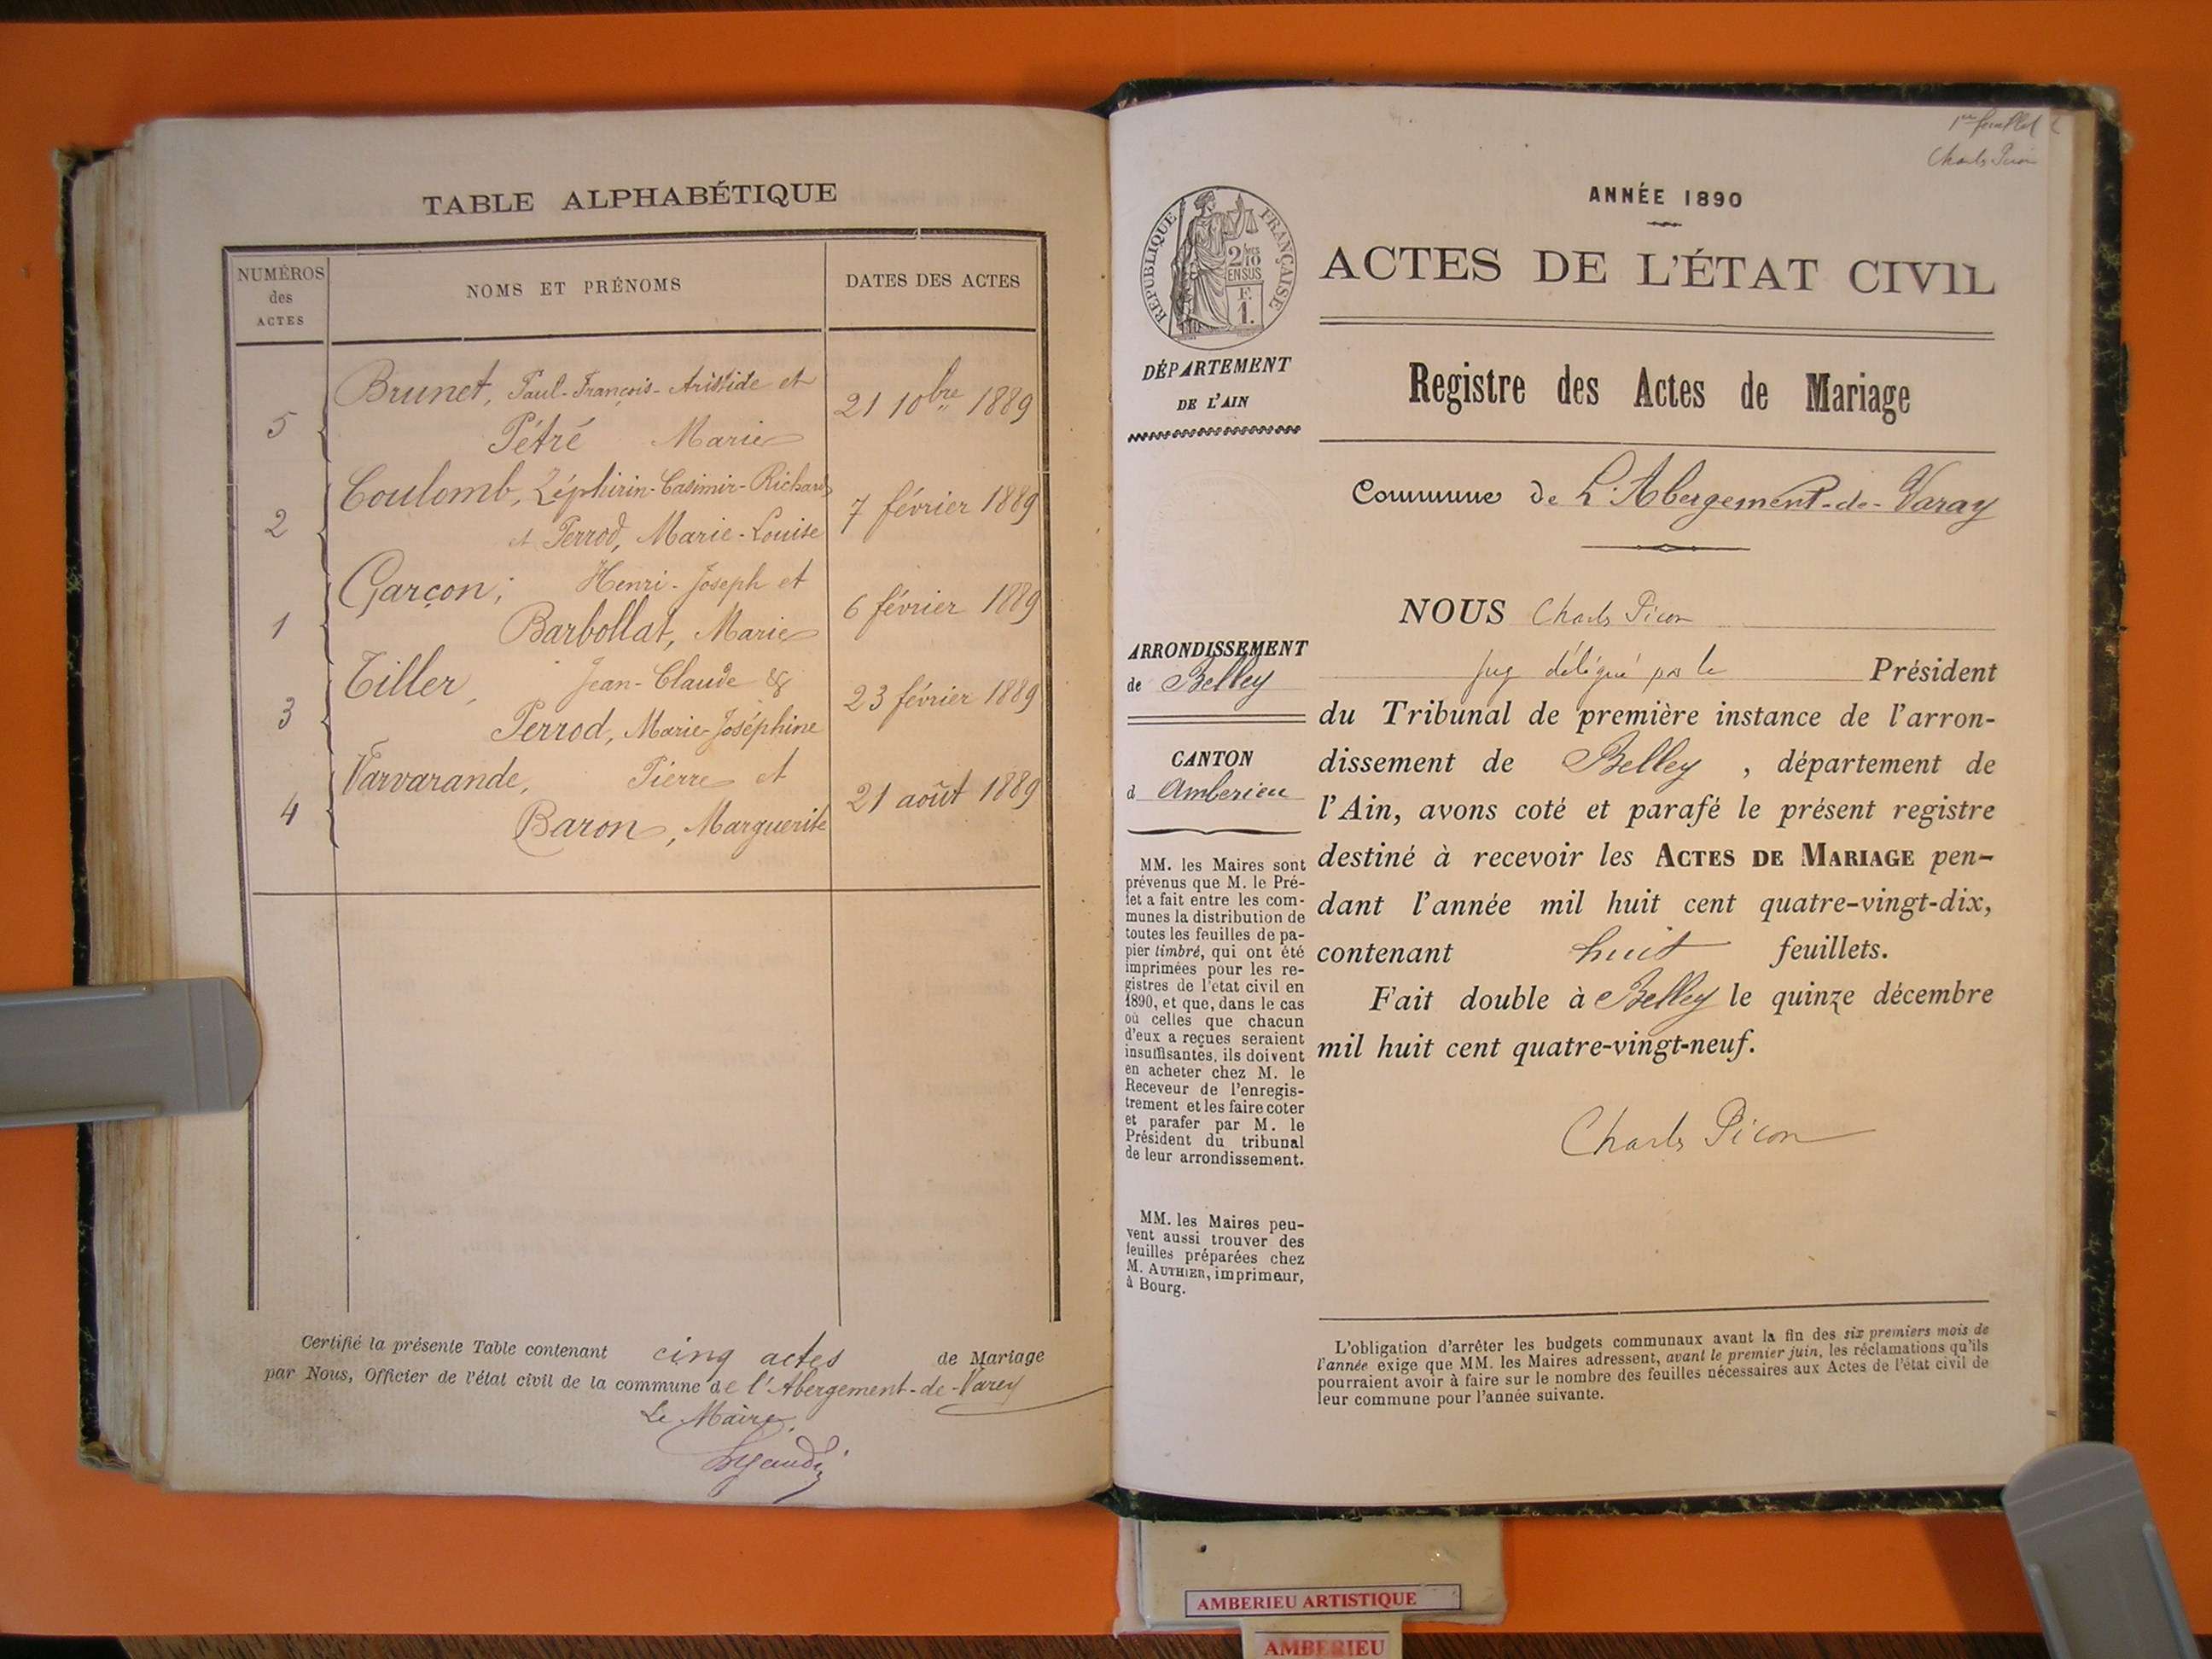 TABLE ALPHABÉTIQUE
NUMÉROS
des
ACTES
NOMS ET PRÉNOMS
DATES DES ACTES
5
Brunet, Paul-François-Aristide et
Pétré Marie
21 10bre 1889
2
Coulomb, Zéphirin-Casimir-Richard
et Perrod, Marie-Louise
7 février 1889
1
Garçon, Henri-Joseph et
Barbollat, Marie
6 février 1889
3
Tiller, Jean-Claude &
Perrod, Marie-Joséphine
23 février 1889
4
Varvarande, Pierre et
Baron, Marguerite
21 août 1889
Certifié la présente Table contenant cinq actes de Mariage
par Nous, Officier de l'état civil de la commune de l'Abergement-de-Varey
Le Maire,
1er feuillet
Charles Picon
ANNÉE 1890
ACTES DE L'ÉTAT CIVIL
RÉPUBLIQUE FRANÇAISE
2/10
EN SUS
F.
1.
DÉPARTEMENT
DE L'AIN
Registre des Actes de Mariage
Commune de L'Abergement-de-Varay
NOUS Charles Picon
ARRONDISSEMENT
de Belley
juge délégué par le Président
du Tribunal de première instance de l'arron-
dissement de Belley, département de
l'Ain, avons coté et parafé le présent registre
destiné à recevoir les ACTES DE MARIAGE pen-
dant l'année mil huit cent quatre-vingt-dix,
contenant huit feuillets.
Fait double à Belley le quinze décembre
mil huit cent quatre-vingt-neuf.
Charles Picon
CANTON
d Amberieu
MM. les Maires sont
prévenus que M. le Pré-
fet a fait entre les com-
munes la distribution de
toutes les feuilles de pa-
pier timbré, qui ont été
imprimées pour les re-
gistres de l'etat civil en
1890, et que, dans le cas
où celles que chacun
d'eux a reçues seraient
insuffisantes, ils doivent
en acheter chez M. le
Receveur de l'enregis-
trement et les faire coter
et parafer par M. le
Président du tribunal
de leur arrondissement.
MM. les Maires peu-
vent aussi trouver des
feuilles préparées chez
M. AUTHIER, imprimeur,
à Bourg.
L'obligation d'arrêter les budgets communaux avant la fin des six premiers mois de
l'année exige que MM. les Maires adressent, avant le premier juin, les réclamations qu'ils
pourraient avoir à faire sur le nombre des feuilles nécessaires aux Actes de l'état civil de
leur commune pour l'année suivante.
AMBERIEU ARTISTIQUE
AMBERIEU